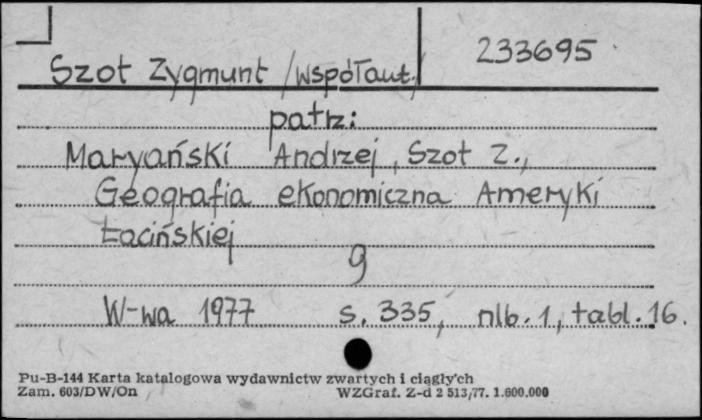 233695
Szot Zygmunt /współaut./
patrz:
Maryański Andrzej, Szot Z.,
Geografia ekonomiczna Ameryki
Łacińskiej
9
W-wa 1977 s. 335, nlb. 1, tabl. 16.
Pu-B-144 Karta katalogowa wydawnictw zwartych i ciągły'ch
Zam. 603/DW/On WZGraf. Z-d 2 513/77. 1.600.000